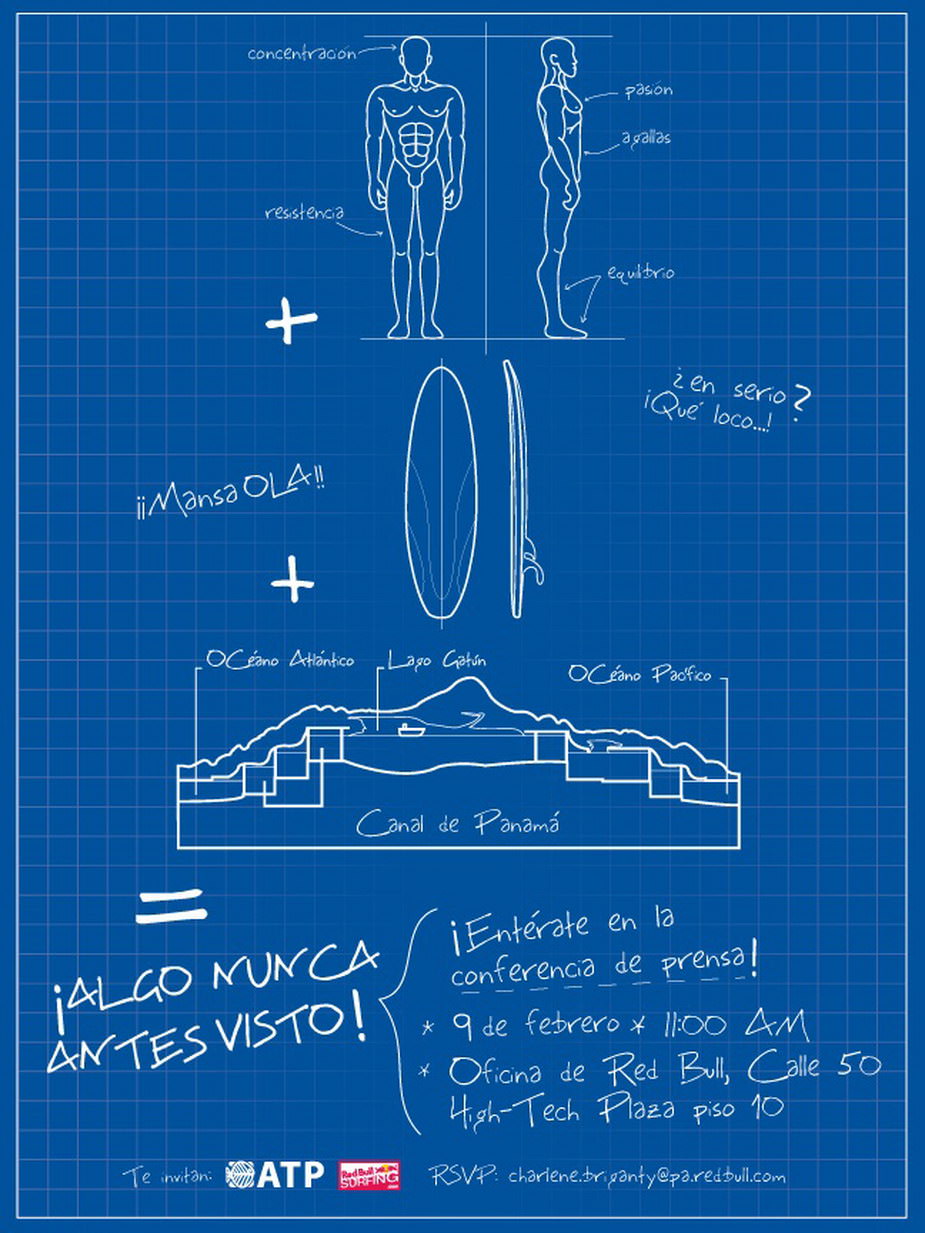 concentración
pasión
agallas
resistencia
equilibrio
¿en serio?
¡Qué loco...!
¡¡Mansa OLA!!
OCéano Atlántico
Lago Gatún
OCéano Pacífico
Canal de Panamá
¡ALGO NUNCA
ANTES VISTO!
¡Entérate en la
conferencia de prensa!
* 9 de febrero * 11:00 AM
* Oficina de Red Bull, Calle 50
High-Tech Plaza piso 10
Te invitan: ATP Red Bull SURFING RSVP: charlene.briganty@pa.redbull.com